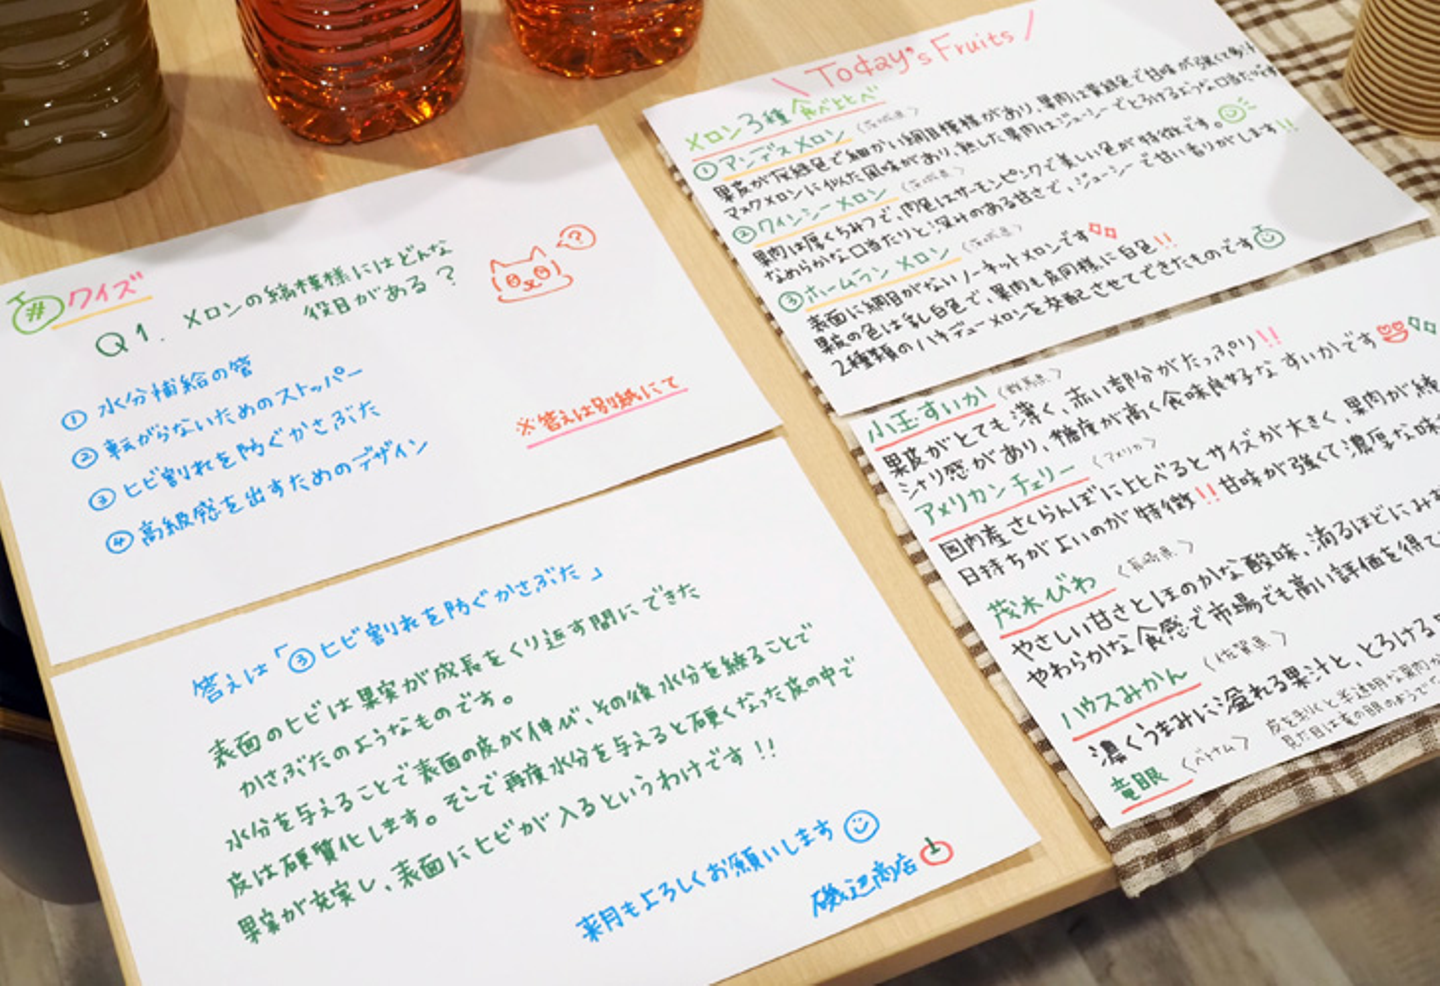 #クイズ
Q1. メロンの縞模様にはどんな
役目がある?
?
① 水分補給の管
② 転がらないためのストッパー
③ ヒビ割れを防ぐかさぶた
④ 高級感を出すためのデザイン
※答えは別紙にて
答えは「③ヒビ割れを防ぐかさぶた」
表面のヒビは果実が成長をくり返す間にできた
かさぶたのようなものです。
水分を与えることで表面の皮が伸び、その後水分を絞ることで
皮は硬質化します。そこで再度水分を与えると硬くなった皮の中で
果実が充実し、表面にヒビが入るというわけです!!
来月もよろしくお願いします
磯辺商店
\ Today's Fruits /
メロン3種食べ比べ
①アンデスメロン〈茨城県〉
果皮が灰緑色で細かい網目模様があり、果肉は黄緑色で甘味が強くて多汁
マスクメロンに似た風味があり、熟した果肉はジューシーでとろけるような口当たりです
②クインシーメロン〈茨城県〉
果肉は厚くちみつで、肉色はサーモンピンクで美しい色が特徴です。
なめらかな口当たりと深みのある甘さで、ジューシーで甘い香りがします!!
③ホームランメロン〈茨城県〉
表面に網目がないノーネットメロンです
果皮の色は乳白色で、果肉も皮同様に白色!!
2種類のハネデューメロンを交配させてできたものです
小玉すいか〈群馬県〉
果皮がとても薄く、赤い部分がたっぷり!!
シャリ感があり、糖度が高く食味良好なすいかです
アメリカンチェリー〈アメリカ〉
国内産さくらんぼに比べるとサイズが大きく、果肉が
日持ちがよいのが特徴!!甘味が強くて濃厚な味
茂木びわ〈長崎県〉
やさしい甘さとほのかな酸味、滴るほどにみず
やわらかな食感で市場でも高い評価を得て
ハウスみかん〈佐賀県〉
濃くうまみに溢れる果汁と、とろける
竜眼〈ベトナム〉
皮を剥くと半透明な果肉が
見た目は竜の眼のようで